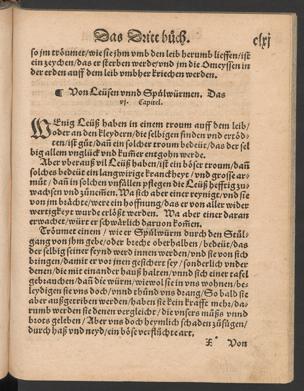 Das Dritt bůch. clxj
so jm tröumet/wie sie jhm vmb den leib herumb lieffen/ist
ein zeychen/das er sterben werde/vnd jm die Omeyssen in
der erden auff dem leib vmbher kriechen werden.
¶ Von Leüsen vnnd Spůlwürmen. Das
vj. Capitel.
WEnig Leüß haben in einem troum auff dem leib/
oder an den kleydern/die selbigen finden vnd ertöd-
ten/ist gůt/dañ ein solcher troum bedeüt/das der sel
big allem vnglück vnd kumer entgohn werde.
Aber vberauß vil Leüß haben/ist ein böser troum/dañ
solches bedeüt ein langwirige kranckheyt/vnd grosse ar-
můt/dañ in solchen vnfällen pflegen die Leüß hefftig zů
wachsen vnd zůnemen. Wa sich aber einer reyniget/vnd sie
von jm brächte/were ein hoffnung/das er von aller wider
wertigkeyt wurde erlößt werden. Wa aber einer daran
erwachet/würt er schwärlich daruon komen.
Tröumet einem/wie er Spůlwürm durch den Stůl-
gang von jhm gebe/oder breche oberhalben/bedeüt/das
der selbig seiner feynd werd innen werden/vnd sie von sich
bringen/damit er vor jnen gesichert sey/sonderlich vnder
denen/die mit einander hauß halten/vnnd sich einer tafel
gebrauchen/dañ die würm/wiewol sie in vns wohnen/be-
leydigen sie vns doch/vnnd thůnd vns drang/So bald sie
aber außgetriben werden/haben sie kein krafft mehr/da-
rumb werden sie denen vergliche/die vnsers můß vnnd
brots geleben/Aber vns doch heymlich schaden zůfügen/
durch haß vnd neyd/ein böse verflůchte art.
X Von